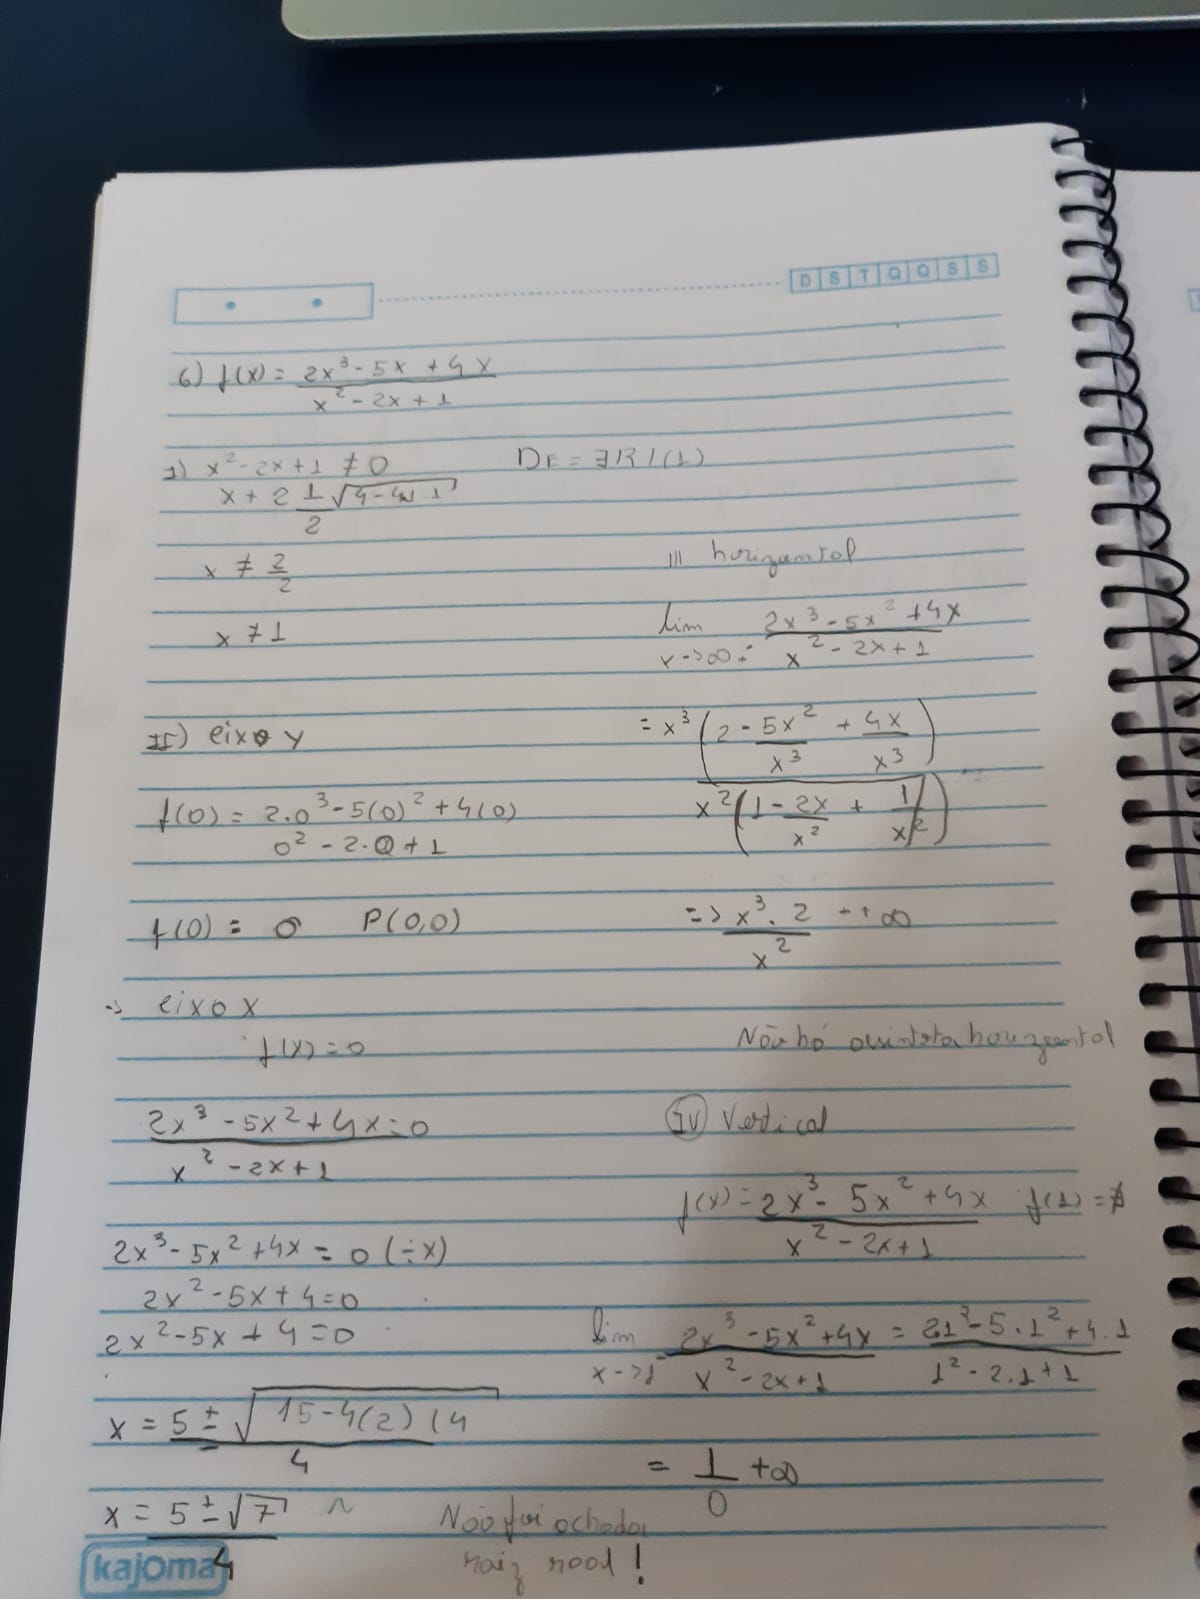 D S T Q Q S S
6) f(x) = (2x³ - 5x + 4x) / (x² - 2x + 1)
1) x² - 2x + 1 ≠ 0
x + 2 ± √(4 - 4.1.1) / 2
x ≠ 2/2
x ≠ 1
II) eixo y
f(0) = (2.0³ - 5(0)² + 4(0)) / (0² - 2.0 + 1)
f(0) = 0 P(0,0)
-> eixo x
f(x) = 0
(2x³ - 5x² + 4x = 0) / (x² - 2x + 1)
2x³ - 5x² + 4x = 0 (÷x)
2x² - 5x + 4 = 0
2x² - 5x + 4 = 0
x = 5 ± √(15 - 4(2)(4 / 4
x = 5 ± √7 / 4
Não foi
raiz !
III horizontal
lim x->∞ (2x³ - 5x² + 4x) / (x² - 2x + 1)
= x³(2 - 5x²/x³ + 4x/x³) / x²(1 - 2x/x² + 1/x²)
=> x³.2 / x² +∞
Não há horizontal
IV Vertical
f(x) = (2x³ - 5x² + 4x) / (x² - 2x + 1) f(1) = ∄
lim x->1 (2x³ - 5x² + 4x) / (x² - 2x + 1) = (2.1³ - 5.1² + 4.1) / (1² - 2.1 + 1)
= 1/0 +∞
kajoma